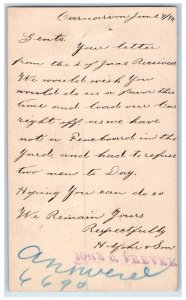 Carnarvon June 4/90
Gents.
Your letter
from the 2 of June Received
We would wish you
would do us a favor this
time and load our Car
right off as we have
not a Fenceboard in the
Yard and had to refuse
two men to Day.
Hoping You can do so
We Remain Yours
Respectfully
& Son
JOHN C. FREYER
Answered
6 6 90